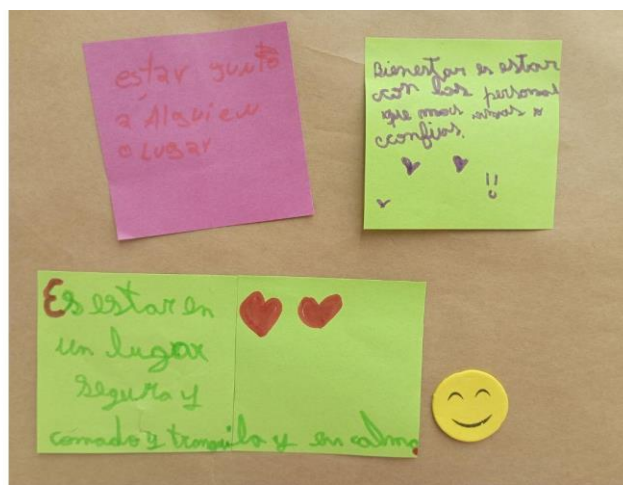 estar gunto
a Alguien
o Lugar
Bienestar es estar
con las personas
que mas amas y
confias.
!!
Es estar en
un lugar
segura y
comado y tranquila y en calma.